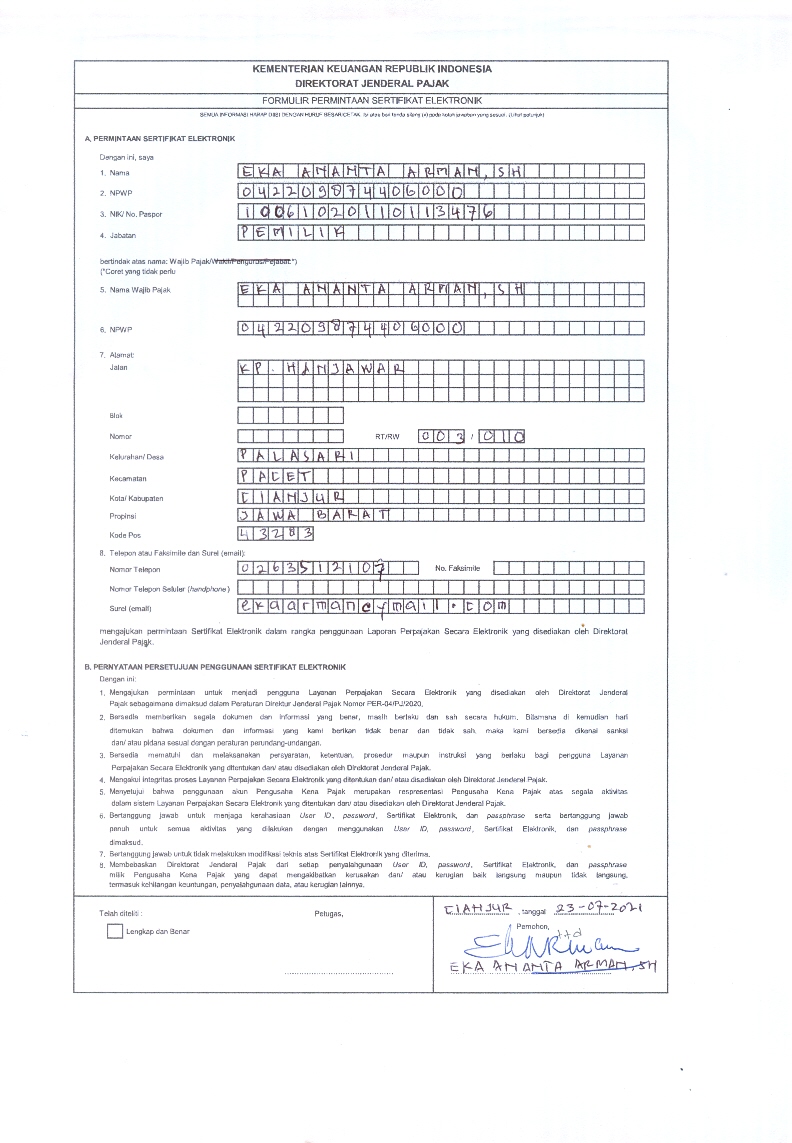 KEMENTERIAN KEUANGAN REPUBLIK INDONESIA
DIREKTORAT JENDERAL PAJAK
FORMULIR PERMINTAAN SERTIFIKAT ELEKTRONIK
SEMUA INFORMASI HARAP DIISI DENGAN HURUF BESAR/CETAK. Isi atau beri tanda silang (x) pada kotak jawaban yang sesuai. (Lihat petunjuk)
A. PERMINTAAN SERTIFIKAT ELEKTRONIK
Dengan ini, saya
1. Nama EKA ANANTA ARMAN, SH
2. NPWP 042209874406000
3. NIK/ No. Paspor 1006102011013476
4. Jabatan PEMILIK
bertindak atas nama: Wajib Pajak/Wakil/Pengurus/Pejabat.*)
(*Coret yang tidak perlu
5. Nama Wajib Pajak EKA ANANTA ARMAN, SH
6. NPWP 042209874406000
7. Alamat:
Jalan KP. HANJAWAR
Blok
Nomor RT/RW 003 / 010
Kelurahan/ Desa PALASARI
Kecamatan PACET
Kota/ Kabupaten CIANJUR
Propinsi JAWA BARAT
Kode Pos 43283
8. Telepon atau Faksimile dan Surel (email):
Nomor Telepon 0263512107 No. Faksimile
Nomor Telepon Seluler (handphone)
Surel (email)
mengajukan permintaan Sertifikat Elektronik dalam rangka penggunaan Laporan Perpajakan Secara Elektronik yang disediakan oleh Direktorat
Jenderal Pajak.
B. PERNYATAAN PERSETUJUAN PENGGUNAAN SERTIFIKAT ELEKTRONIK
Dengan ini:
1. Mengajukan permintaan untuk menjadi pengguna Layanan Perpajakan Secara Elektronik yang disediakan oleh Direktorat Jenderal
Pajak sebagaimana dimaksud dalam Peraturan Direktur Jenderal Pajak Nomor PER-04/PJ/2020.
2. Bersedia memberikan segala dokumen dan informasi yang benar, masih berlaku dan sah secara hukum. Bilamana di kemudian hari
ditemukan bahwa dokumen dan informasi yang kami berikan tidak benar dan tidak sah, maka kami bersedia dikenai sanksi
dan/ atau pidana sesuai dengan peraturan perundang-undangan.
3. Bersedia mematuhi dan melaksanakan persyaratan, ketentuan, prosedur maupun instruksi yang berlaku bagi pengguna Layanan
Perpajakan Secara Elektronik yang ditentukan dan/ atau disediakan oleh Direktorat Jenderal Pajak.
4. Mengakui integritas proses Layanan Perpajakan Secara Elektronik yang ditentukan dan/ atau disediakan oleh Direktorat Jenderal Pajak.
5. Menyetujui bahwa penggunaan akun Pengusaha Kena Pajak merupakan respresentasi Pengusaha Kena Pajak atas segala aktivitas
dalam sistem Layanan Perpajakan Secara Elektronik yang ditentukan dan/ atau disediakan oleh Direktorat Jenderal Pajak.
6. Bertanggung jawab untuk menjaga kerahasiaan User ID, password, Sertifikat Elektronik, dan passphrase serta bertanggung jawab
penuh untuk semua aktivitas yang dilakukan dengan menggunakan User ID, password, Sertifikat Elektronik, dan passphrase
dimaksud.
7. Bertanggung jawab untuk tidak melakukan modifikasi teknis atas Sertifikat Elektronik yang diterima.
8. Membebaskan Direktorat Jenderal Pajak dari setiap penyalahgunaan User ID, password, Sertifikat Elektronik, dan passphrase
milik Pengusaha Kena Pajak yang dapat mengakibatkan kerusakan dan/ atau kerugian baik langsung maupun tidak langsung,
termasuk kehilangan keuntungan, penyalahgunaan data, atau kerugian lainnya.
Telah diteliti : Petugas,
Lengkap dan Benar
CIANJUR, tanggal 23-07-2021
Pemohon,
ttd
EKA ANANTA ARMAN, SH